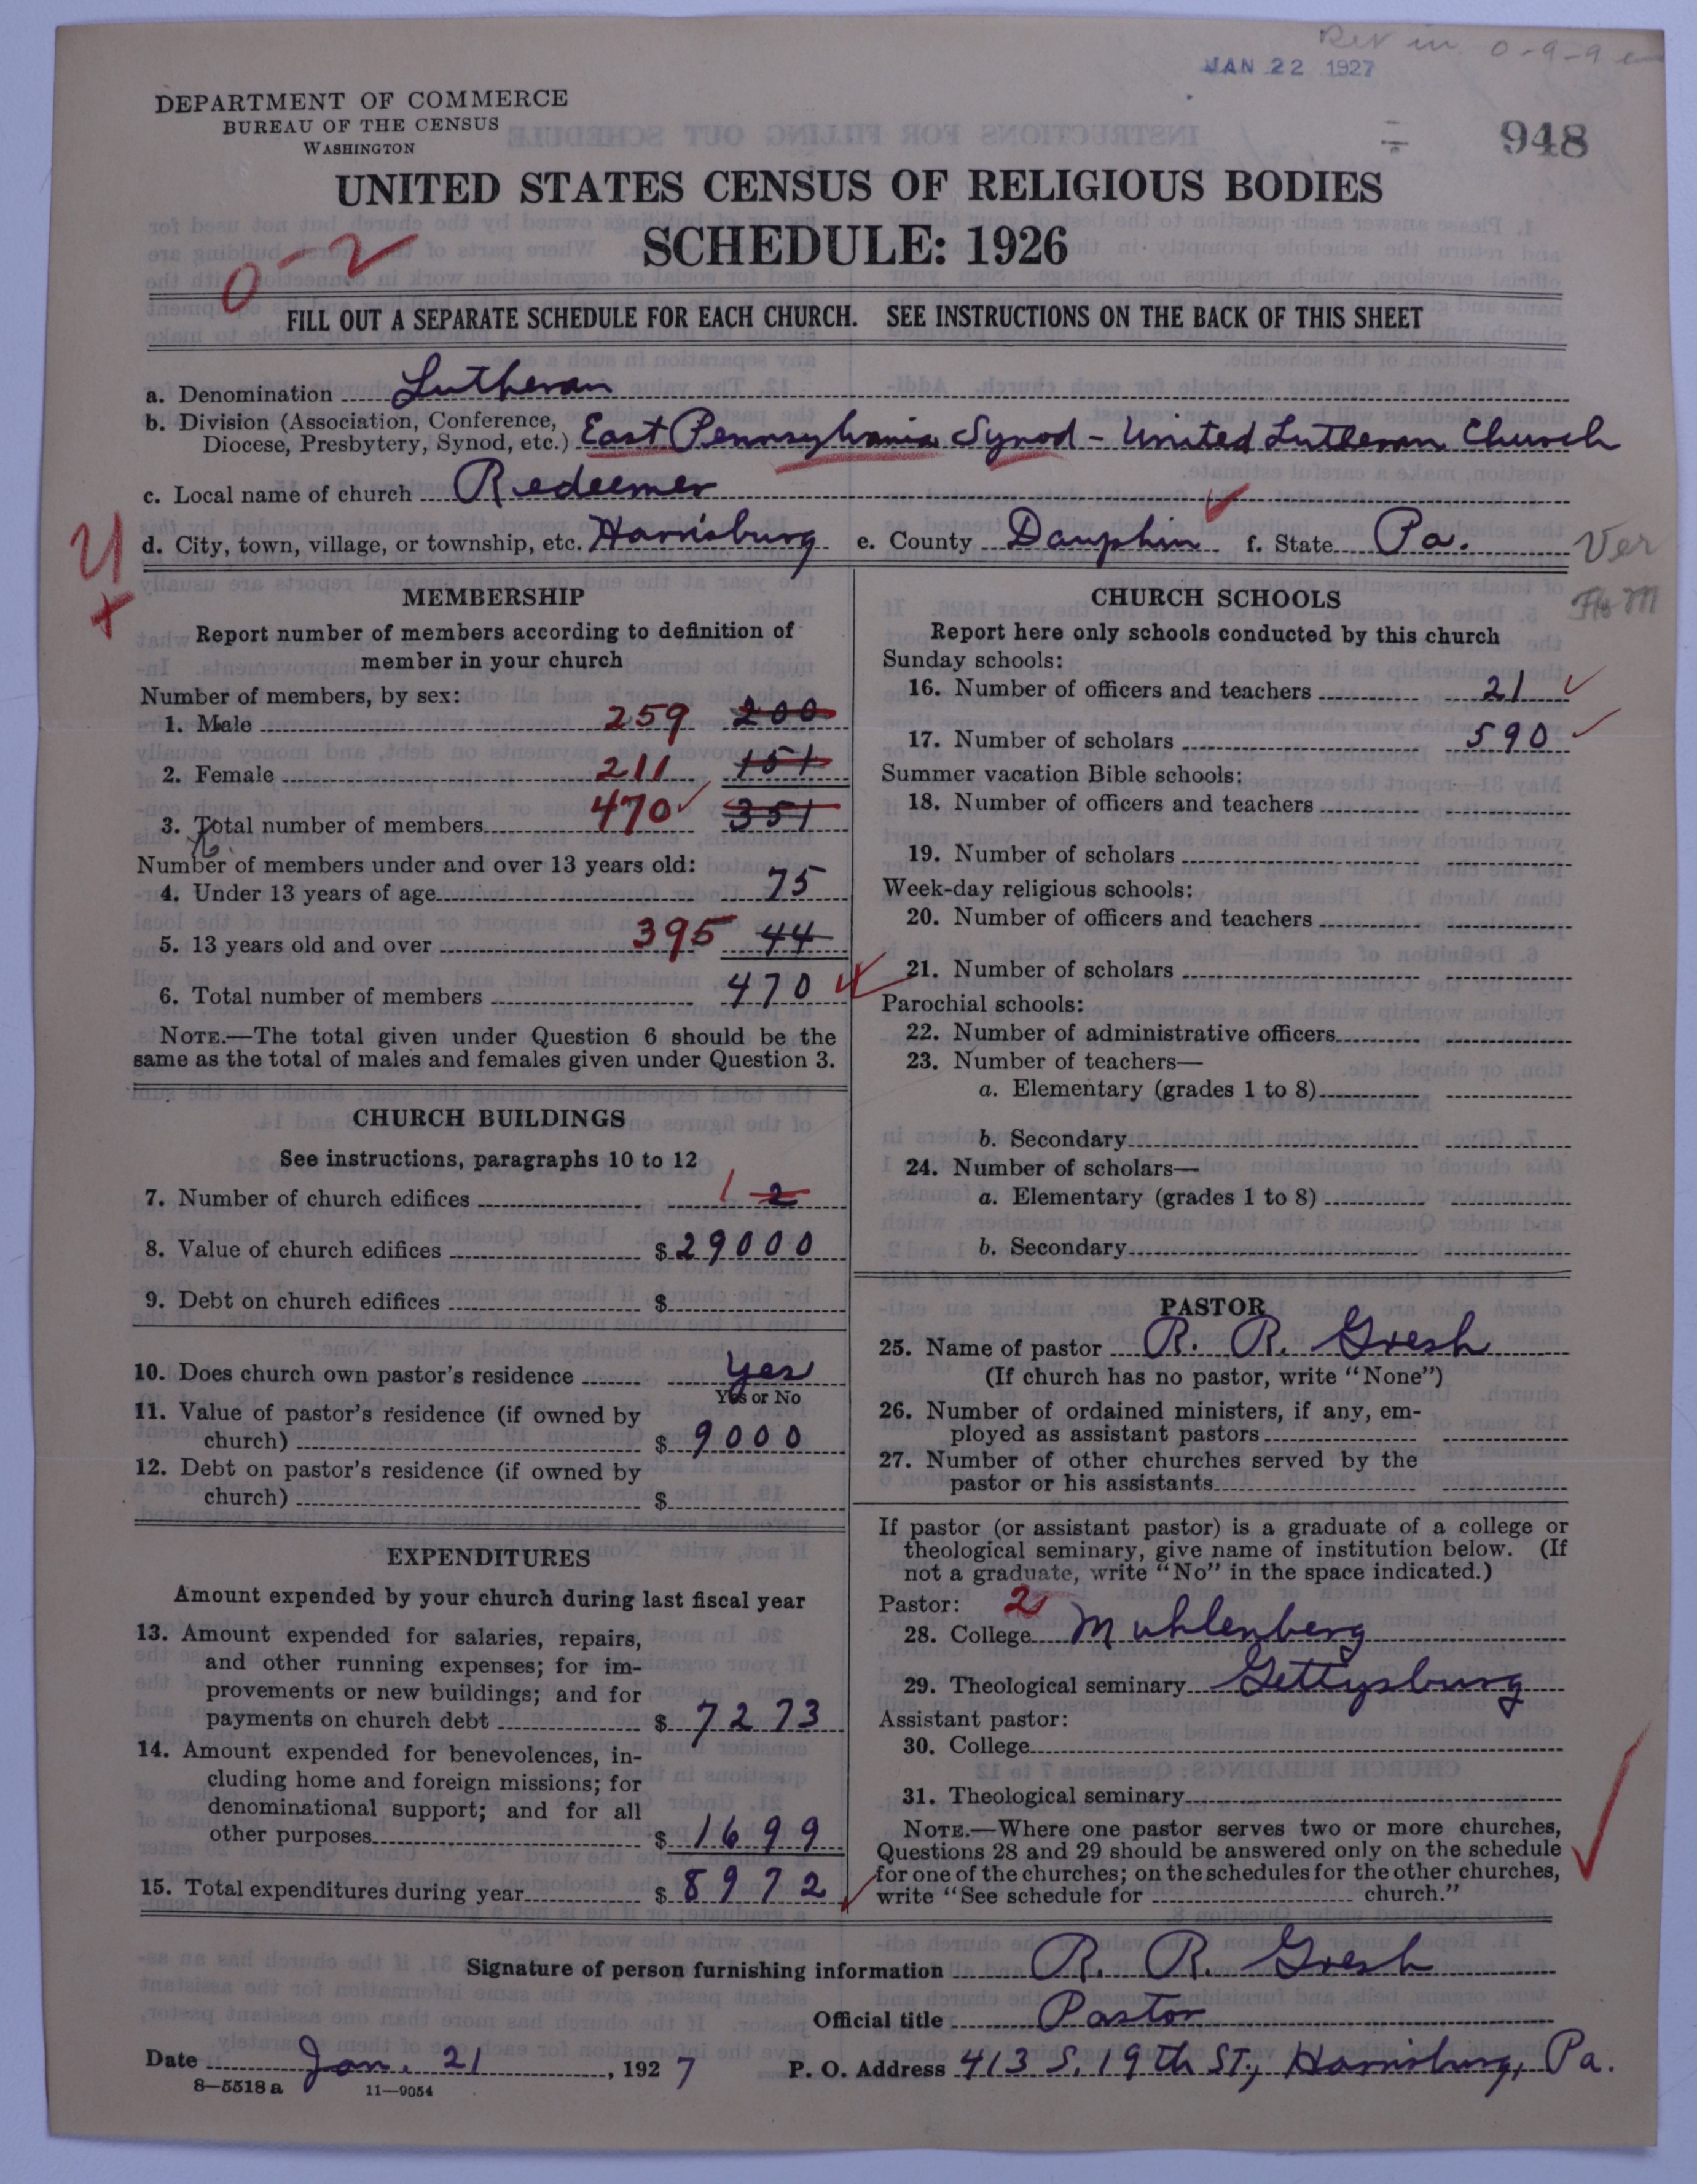 Rev in 0-9-9
JAN 22 1927
DEPARTMENT OF COMMERCE
BUREAU OF THE CENSUS
WASHINGTON
948
UNITED STATES CENSUS OF RELIGIOUS BODIES
SCHEDULE: 1926
0-2
FILL OUT A SEPARATE SCHEDULE FOR EACH CHURCH. SEE INSTRUCTIONS ON THE BACK OF THIS SHEET
a. Denomination Lutheran
b. Division (Association, Conference,
Diocese, Presbytery, Synod, etc.) East Pennsylvania Synod - United Lutheran Church
c. Local name of church Redeemer
d. City, town, village, or township, etc. Harrisburg e. County Dauphin f. State Pa.
Ver
MEMBERSHIP
Report number of members according to definition of
member in your church
Number of members, by sex:
1. Male 259 200
2. Female 211 151
3. Total number of members 470 351
Number of members under and over 13 years old:
4. Under 13 years of age 75
5. 13 years old and over 395 44
6. Total number of members 470
NOTE.—The total given under Question 6 should be the
same as the total of males and females given under Question 3.
CHURCH BUILDINGS
See instructions, paragraphs 10 to 12
7. Number of church edifices 1 2
8. Value of church edifices $ 29000
9. Debt on church edifices $
10. Does church own pastor's residence Yes
Yes or No
11. Value of pastor's residence (if owned by
church) $ 9000
12. Debt on pastor's residence (if owned by
church) $
EXPENDITURES
Amount expended by your church during last fiscal year
13. Amount expended for salaries, repairs,
and other running expenses; for im-
provements or new buildings; and for
payments on church debt $ 7273
14. Amount expended for benevolences, in-
cluding home and foreign missions; for
denominational support; and for all
other purposes $ 1699
15. Total expenditures during year $ 8972
CHURCH SCHOOLS
Report here only schools conducted by this church
Sunday schools:
16. Number of officers and teachers 21
17. Number of scholars 590
Summer vacation Bible schools:
18. Number of officers and teachers
19. Number of scholars
Week-day religious schools:
20. Number of officers and teachers
21. Number of scholars
Parochial schools:
22. Number of administrative officers
23. Number of teachers—
a. Elementary (grades 1 to 8)
b. Secondary
24. Number of scholars—
a. Elementary (grades 1 to 8)
b. Secondary
PASTOR
25. Name of pastor R. R. Gresh
(If church has no pastor, write "None")
26. Number of ordained ministers, if any, em-
ployed as assistant pastors
27. Number of other churches served by the
pastor or his assistants
If pastor (or assistant pastor) is a graduate of a college or
theological seminary, give name of institution below. (If
not a graduate, write "No" in the space indicated.)
Pastor: 2
28. College Muhlenberg
29. Theological seminary Gettysburg
Assistant pastor:
30. College
31. Theological seminary
NOTE.—Where one pastor serves two or more churches,
Questions 28 and 29 should be answered only on the schedule
for one of the churches; on the schedules for the other churches,
write "See schedule for church."
Signature of person furnishing information R. R. Gresh
Official title Pastor
Date Jan. 21, 1927 P. O. Address 413 S. 19th St., Harrisburg, Pa.
8—5518a 11—9054